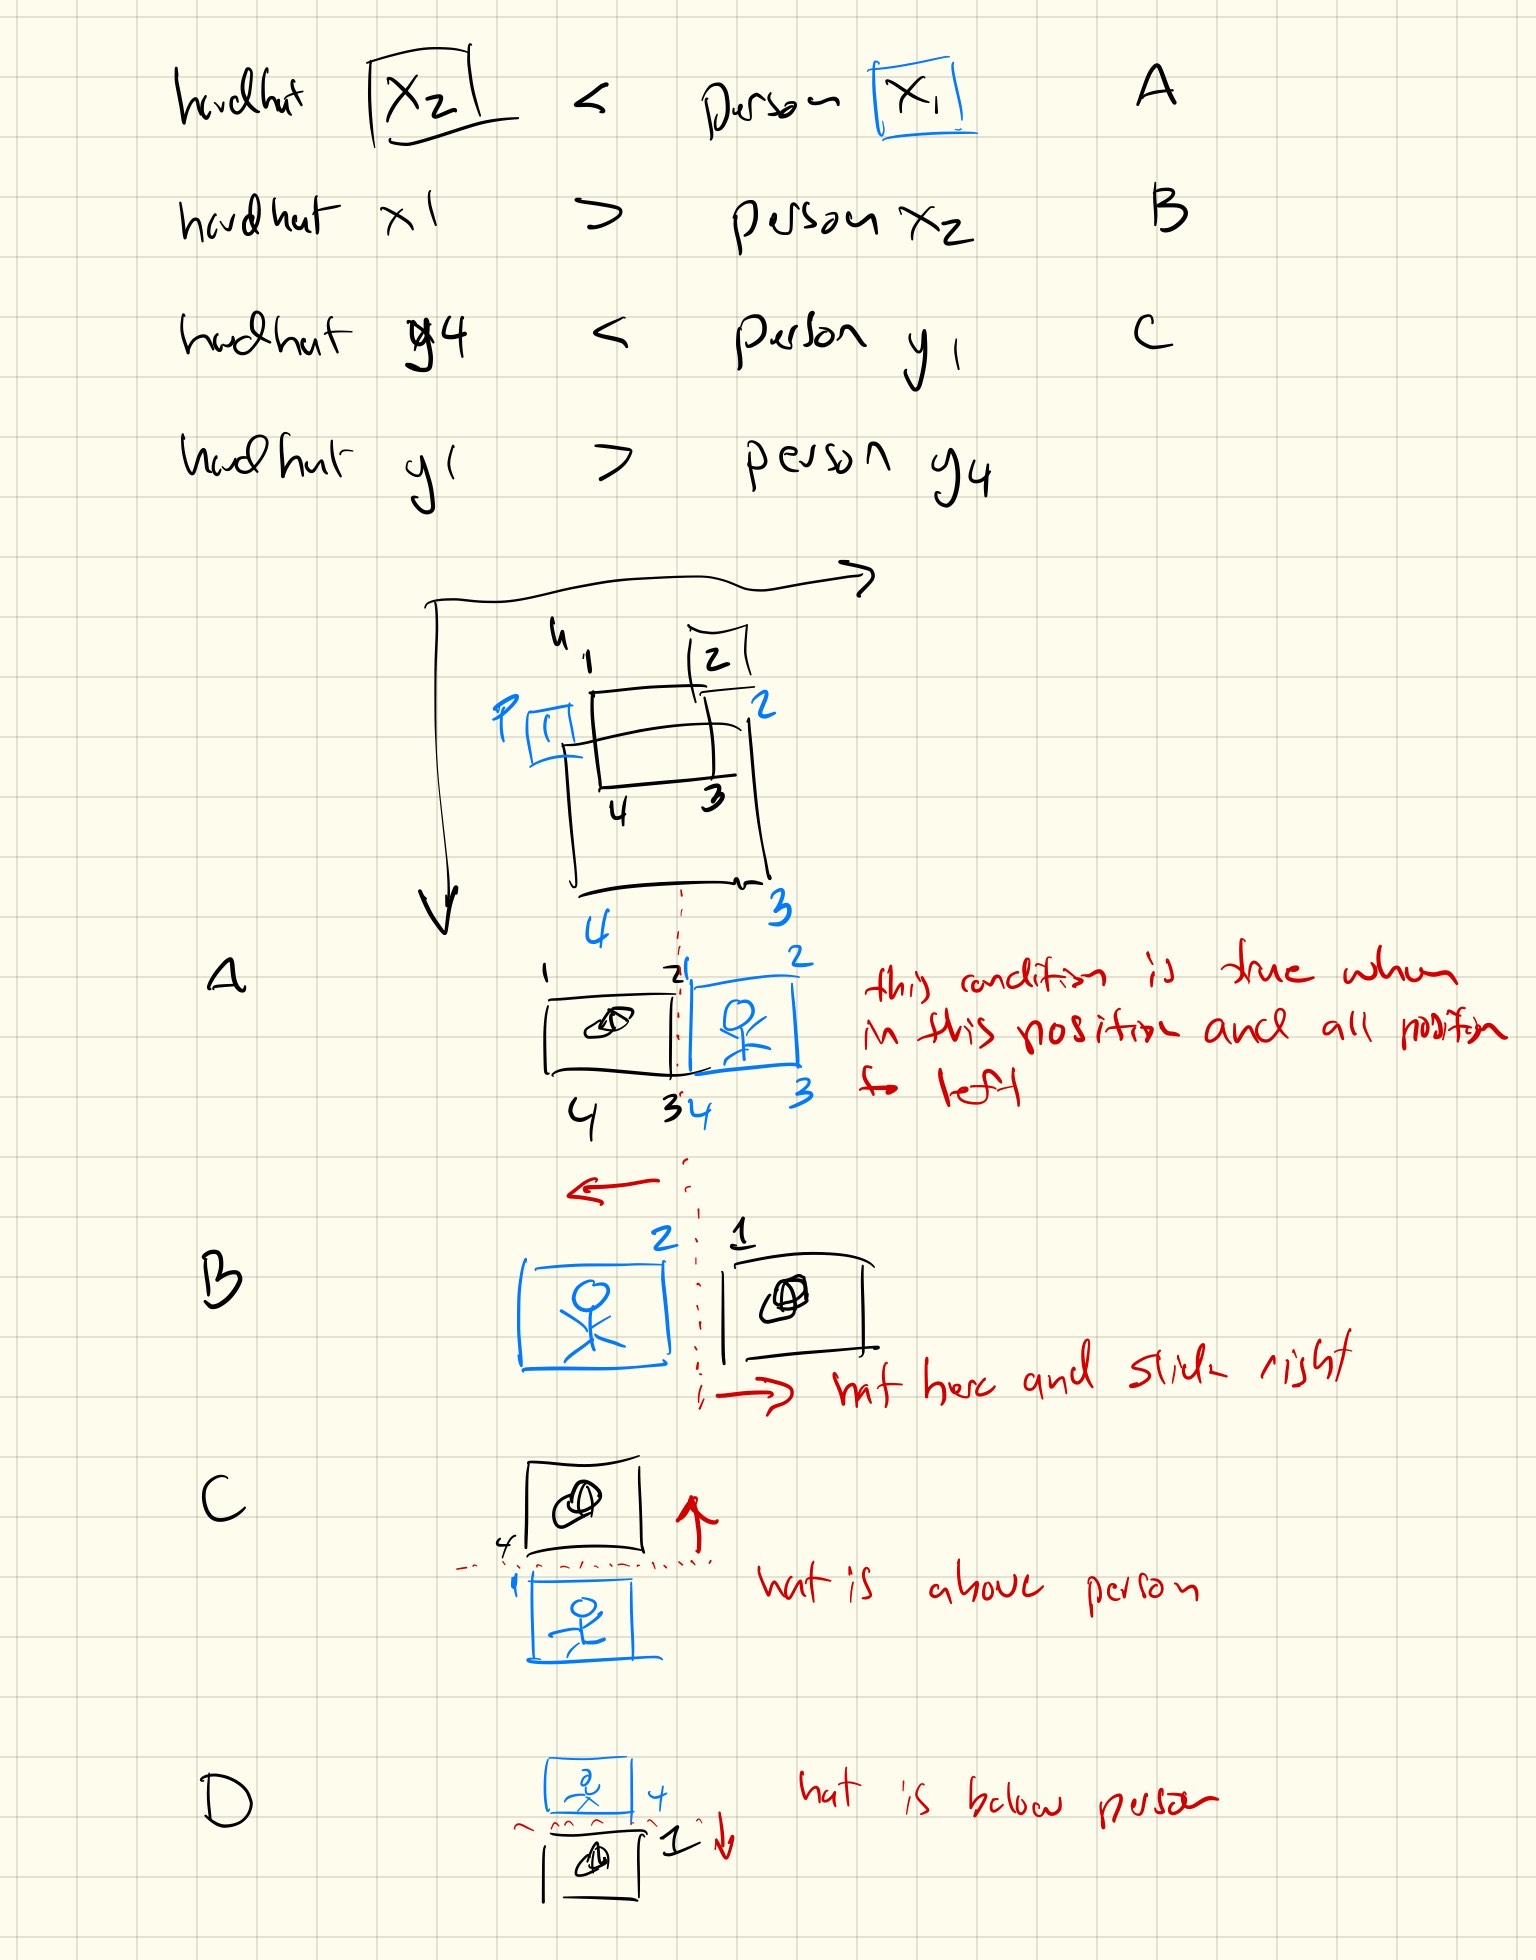 hardhat x2 < person x1 A
hardhat x1 > person x2 B
hardhat y4 < person y1 C
hardhat y1 > person y4
h 1 2
P 1 2
4 3
4 3
A 1 2 1 2
this condition is true when
in this position and all position
to left
4 3 4 3
B 2 1
hat here and slide right
C
4
1
hat is above person
D 4
hat is below person
1